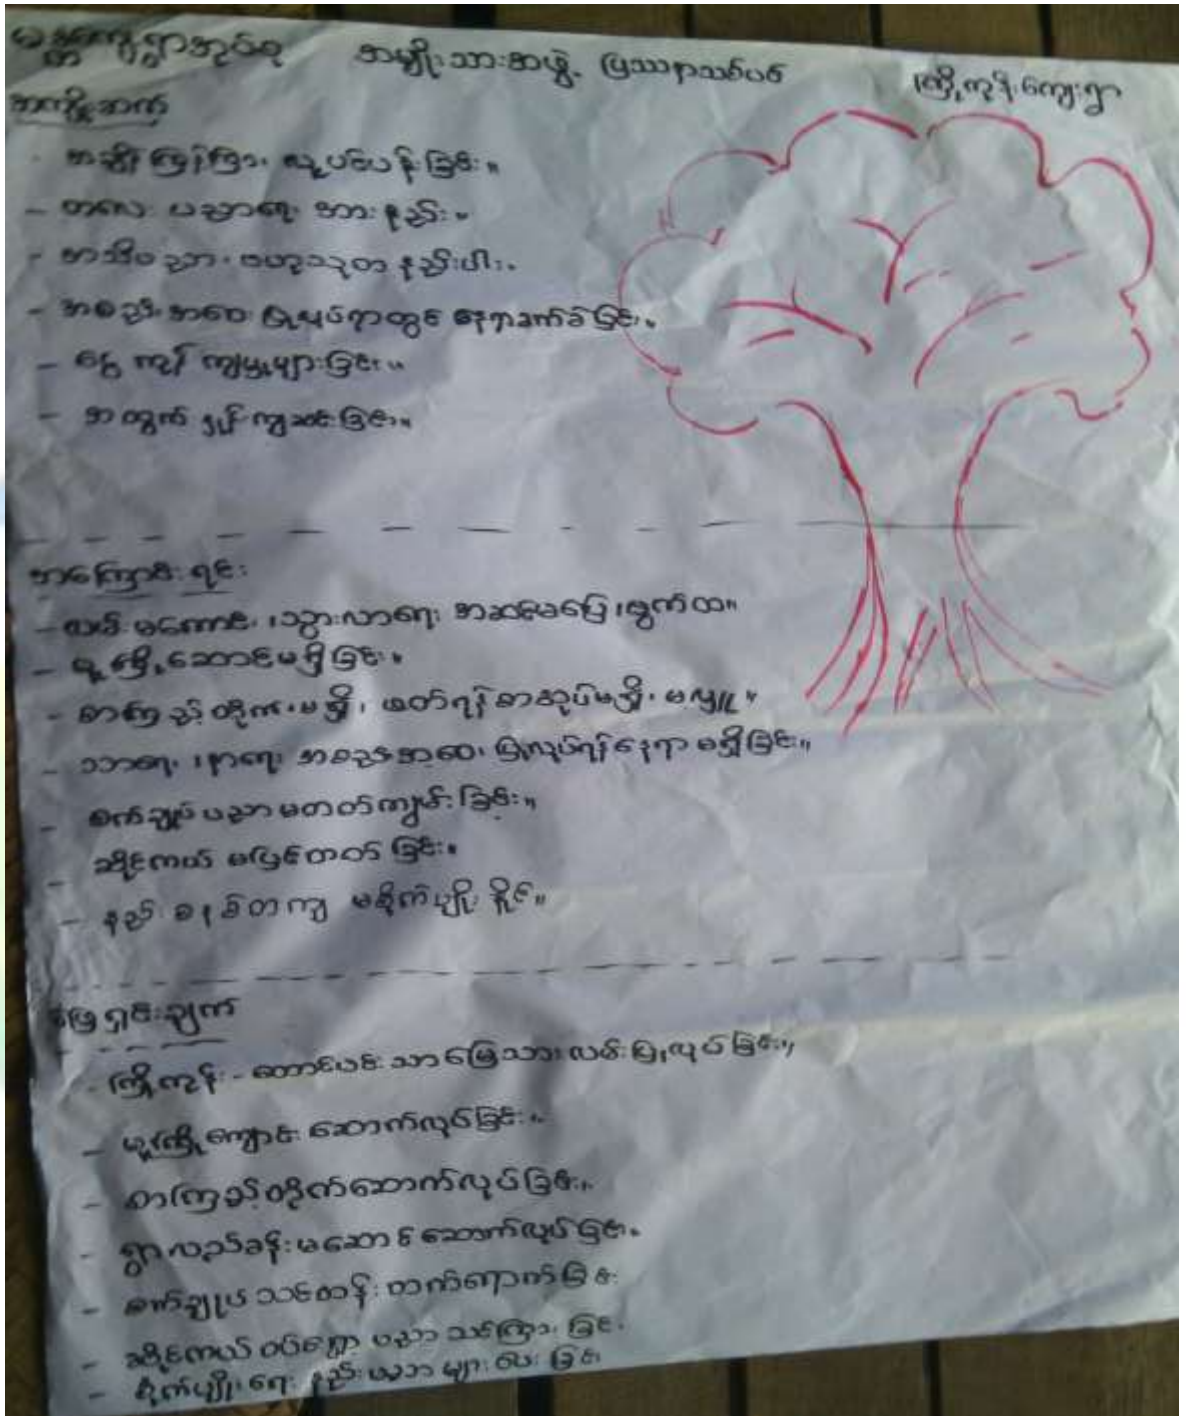 ကျေးရွာအုပ်စု အမျိုးသားအဖွဲ့ ပြဿနာသစ်ပင် ကြို့ကုန်းကျေးရွာ
အကျိုးဆက်
အချိန်ကြန့်ကြာ၊ လူပင်ပန်းခြင်း။
- ကလေး ပညာရေး အားနည်း။
- အသိပညာ၊ ဗဟုသုတ နည်းပါး။
- အစည်းအဝေး ပြုလုပ်ရာတွင် နေရာခက်ခဲခြင်း။
- ငွေကုန်ကျမှုများခြင်း။
- အထွက်နှုန်းကျဆင်းခြင်း။
အကြောင်းရင်း
- လမ်းမကောင်း၊ သွားလာရေး အဆင်မပြေ၊ ထွက်ထ။
- မူကြိုဆောင်မရှိခြင်း။
- စာကြည့်တိုက်မရှိ၊ ဖတ်ရန်စာအုပ်မရှိ၊ မလှူ။
- သာရေး၊ နာရေး အစည်းအဝေး ပြုလုပ်ရန်နေရာမရှိခြင်း။
- စက်ချုပ်ပညာမတတ်ကျွမ်းခြင်း။
- ဆိုင်ကယ် မပြင်တတ်ခြင်း။
- နည်းစနစ်တကျ မစိုက်ပျိုးနိုင်။
ဖြေရှင်းချက်
- ကြို့ကုန်း - တောင်ပေါင်းသာ မြေသားလမ်းပြုလုပ်ခြင်း။
- မူကြိုကျောင်း ဆောက်လုပ်ခြင်း။
- စာကြည့်တိုက်ဆောက်လုပ်ခြင်း။
- ရွာလည်ခန်းမဆောင် ဆောက်လုပ်ခြင်း။
- စက်ချုပ်သင်တန်း တက်ရောက်ခြင်း
- ဆိုင်ကယ်ဝပ်ရှော့ ပညာသင်ကြားခြင်း
- စိုက်ပျိုးရေး နည်းပညာများ ပေးခြင်း